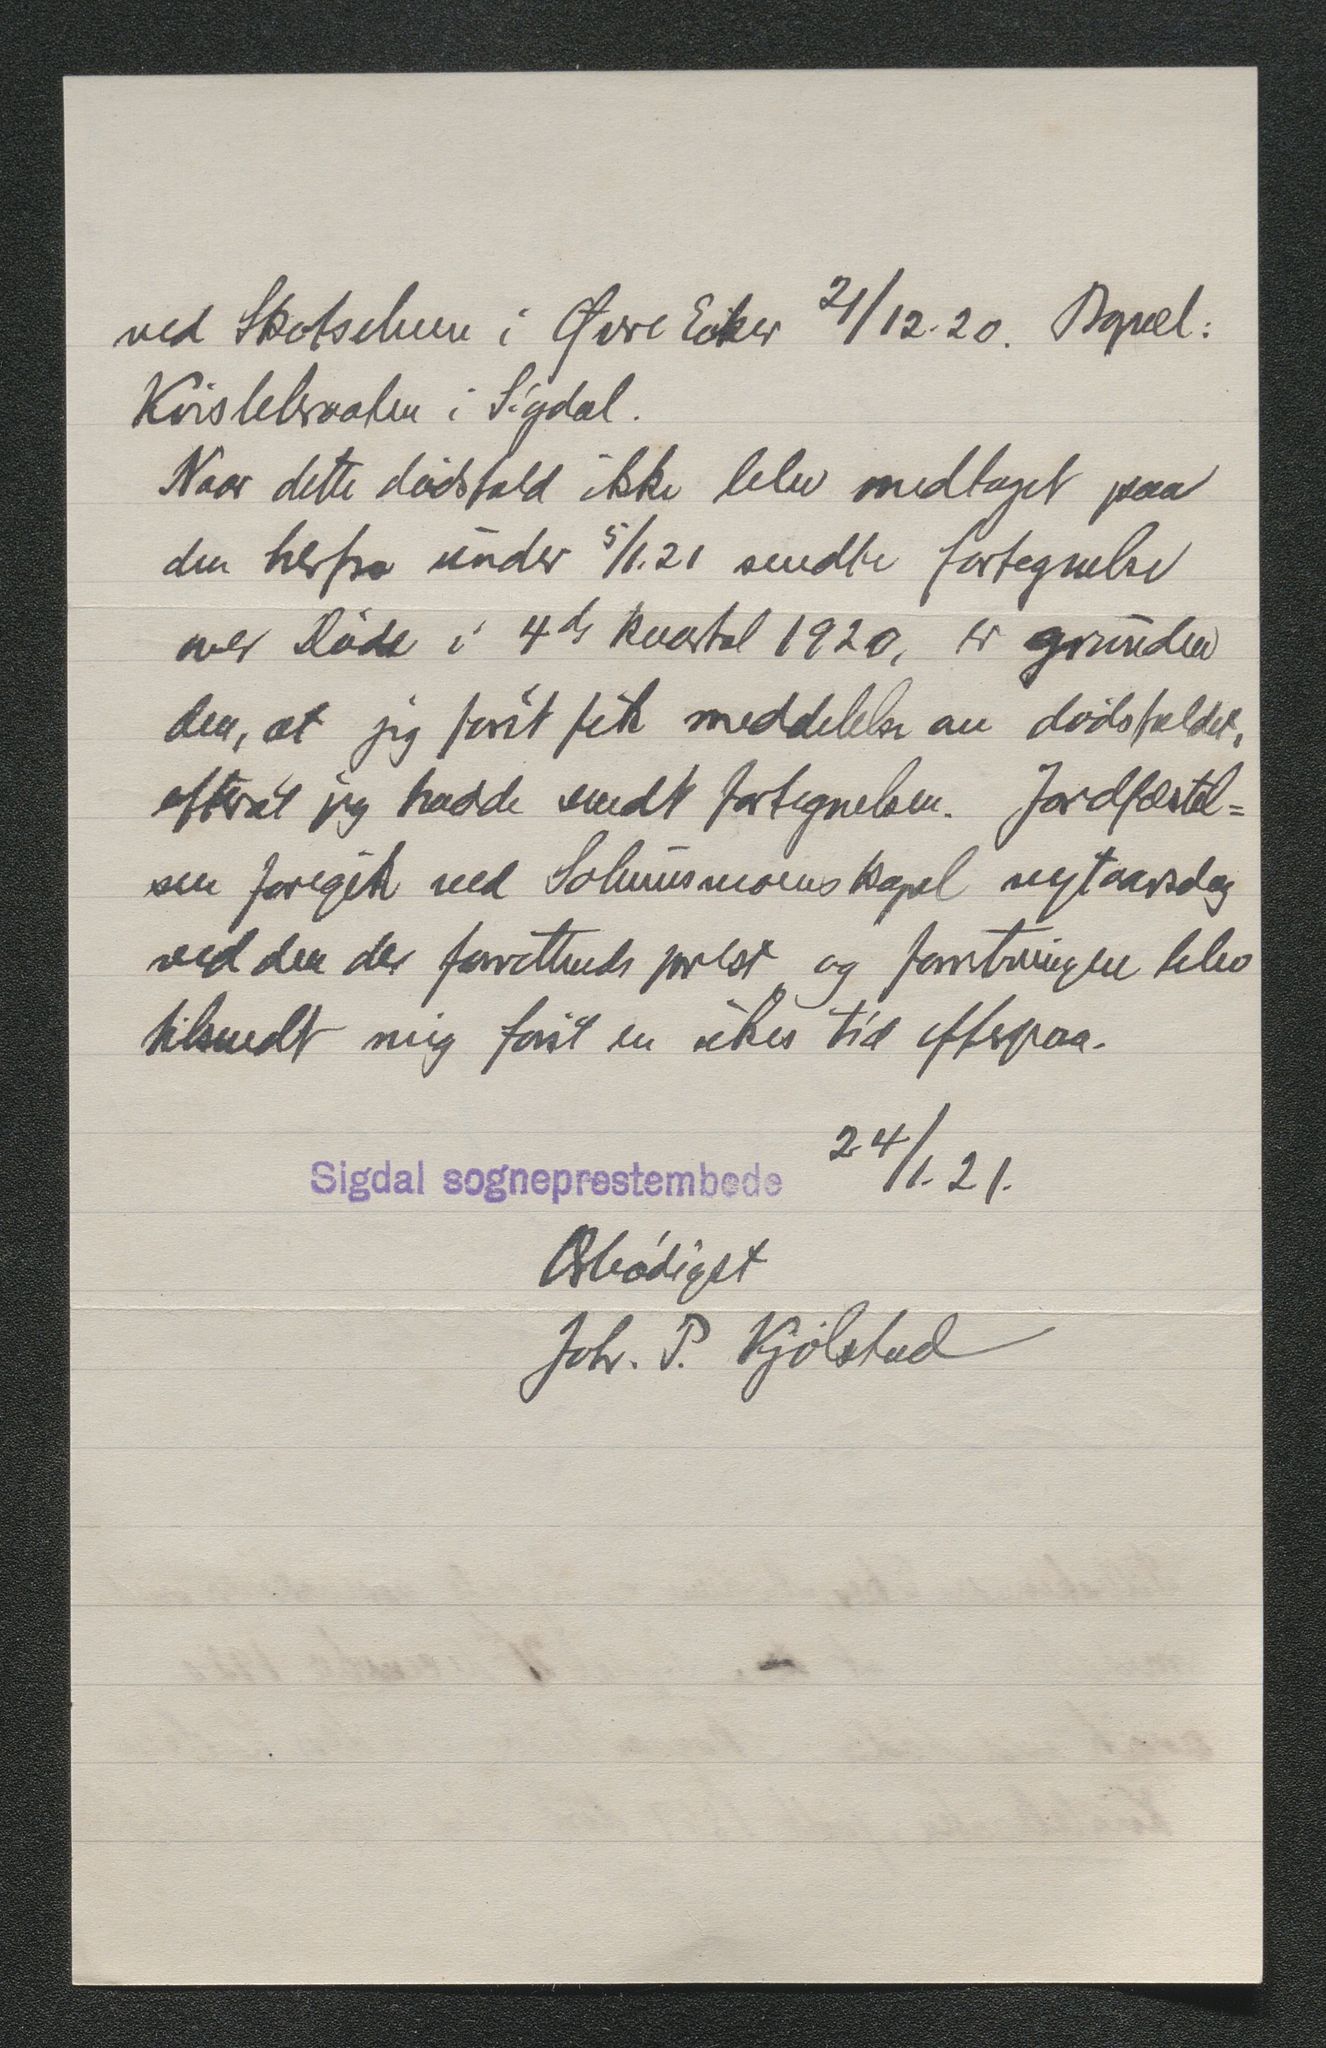 ved Skotselven i Øvre Eiker 21/12.20. Bopæl:
Kvisleberaaten i Sigdal.
Naar dette dødsfald ikke blev medtaget paa
den herfra under 5/1.21 sendte fortegnelse
over Døde i 4de kvartal 1920, er grunden
den, at jeg først fik meddelelse om dødsfaldet,
efterat jeg hadde sendt fortegnelsen. Jordfæstel=
sen foregik ved Solumsmoens kapel nytaarsdag
ved den der forrettende prest og forretningen blev
tilsendt mig først en ukes tid efterpaa.
Sigdal sogneprestembede 24/1.21.
Ærbødigst
Joh. P. Kjölstad